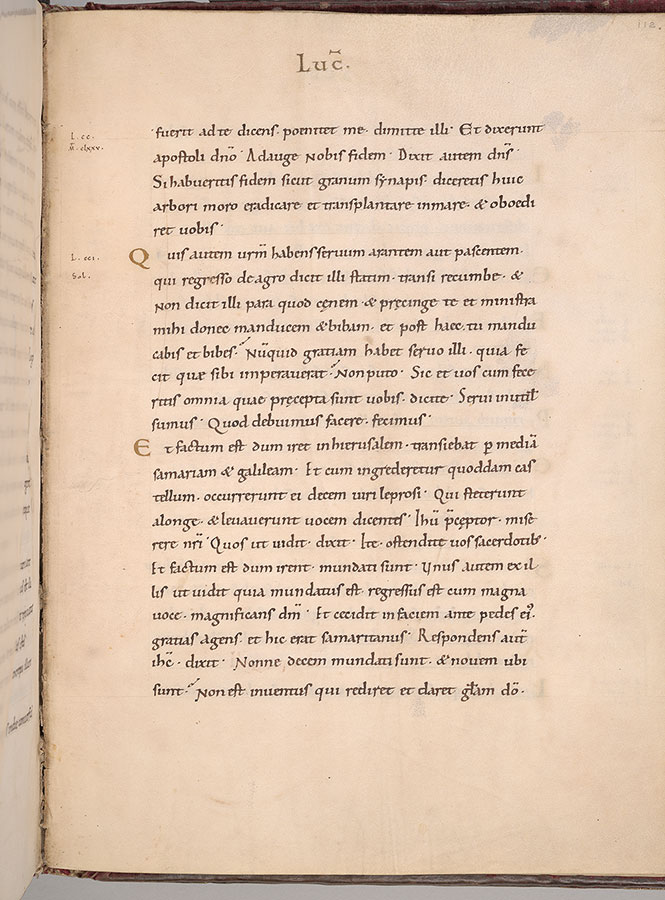 112.
Luc̄.
L. cc.
M̄. clxxv.
fuerit ad te dicens. poenitet me. dimitte illi. Et dixerunt
apostoli dn̄o. Adauge nobis fidem. Dixit autem dn̄s.
Si habueritis fidem sicut granum synapis. diceretis huic
arbori moro eradicare et transplantare in mare. & oboedi
ret uobis.
L. cci.
Sol.
Quis autem ur̄m habens seruum arantem aut pascentem.
qui regresso de agro dicit illi statim. transi recumbe. &
non dicit illi para quod cęnem. & pręcinge te et ministra
mihi donec manducem & bibam. et post haec. tu mandu
cabis et bibes. Nūquid gratiam habet seruo illi. quia fe
cit quae sibi imperauerat. Non puto. Sic et uos cum fece
ritis omnia quae pręcepta sunt uobis. dicite. Serui inutil̄
sumus. Quod debuimus facere. fecimus.
Et factum est dum iret in hierusalem. transiebat p̄ mediā
samariam & galileam. Et cum ingrederetur quoddam cas
tellum. occurrerunt ei decem uiri leprosi. Qui steterunt
a longe. & leuauerunt uocem dicentes. Ihū p̄ceptor. mise
rere nr̄i. Quos ut uidit. dixit. Ite. ostendite uos sacerdotib'.
Et factum est dum irent. mundati sunt. Unus autem ex il
lis ut uidit quia mundatus est. regressus est cum magna
uoce. magnificans dm̄. Et cecidit in faciem ante pedes ei'.
gratias agens. et hic erat samaritanus. Respondens aut̄
ihc̄. dixit. Nonne decem mundati sunt. & nouem ubi
sunt. Non est inuentus qui rediret et daret gl̄am dō.